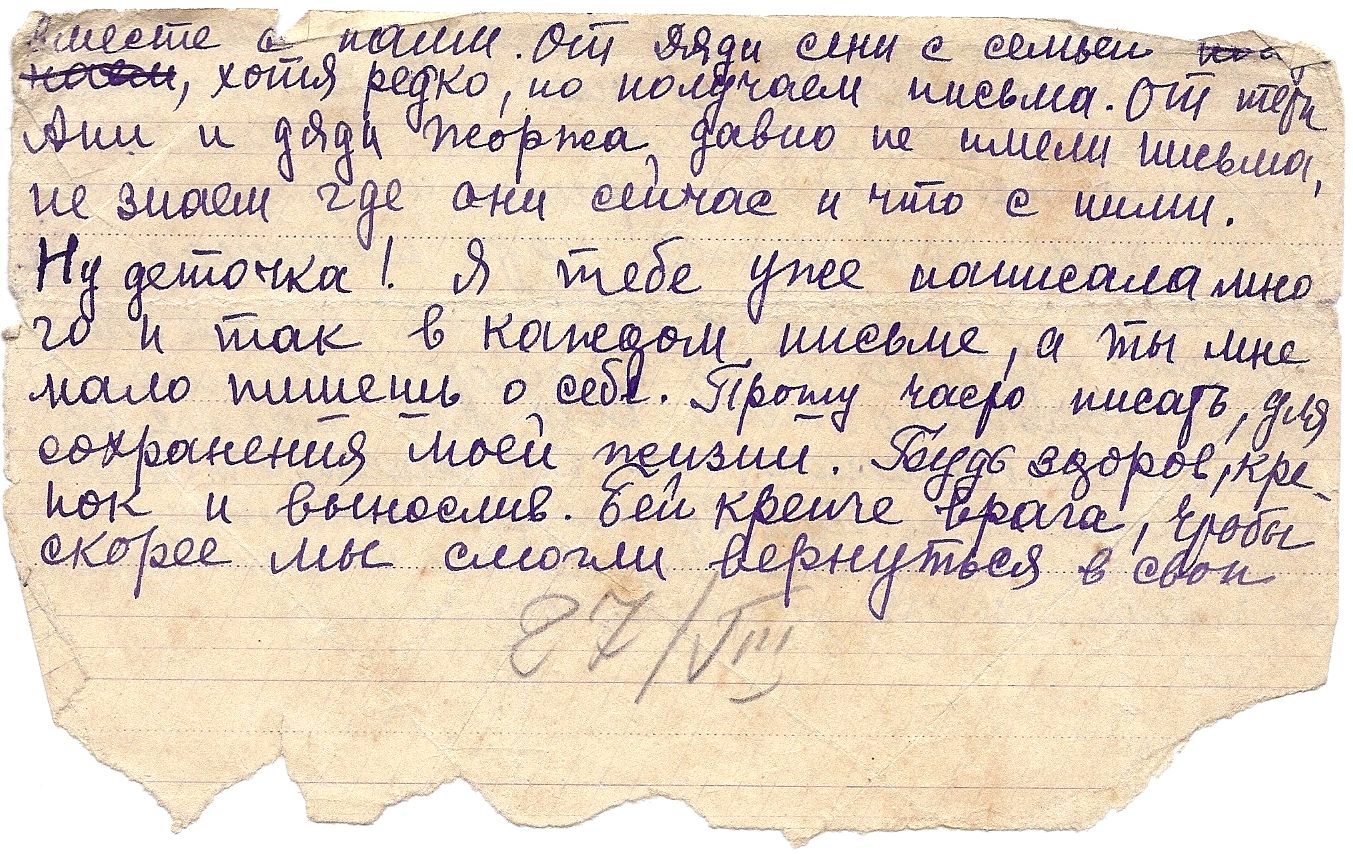 вместе с нами. От дяди сени с семьей
, хотя редко, но получаем письма. От тети
Ани и дяди Жоржа давно не имели письма,
не знаем где они сейчас и что с ними.
Ну деточка! Я тебе уже написала мно
го и так в каждом письме, а ты мне
мало пишешь о себе. Прошу часто писать, для
сохранения моей жизни. Будь здоров, кре-
пок и вынослив. Бей крепче врага, чтобы
скорее мы смогли вернуться в свои
27/VIII